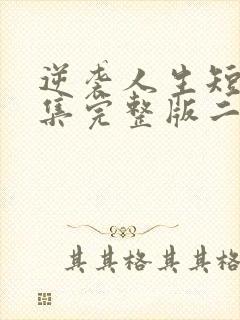 逆袭人生短
集完整版二
其其格其其格